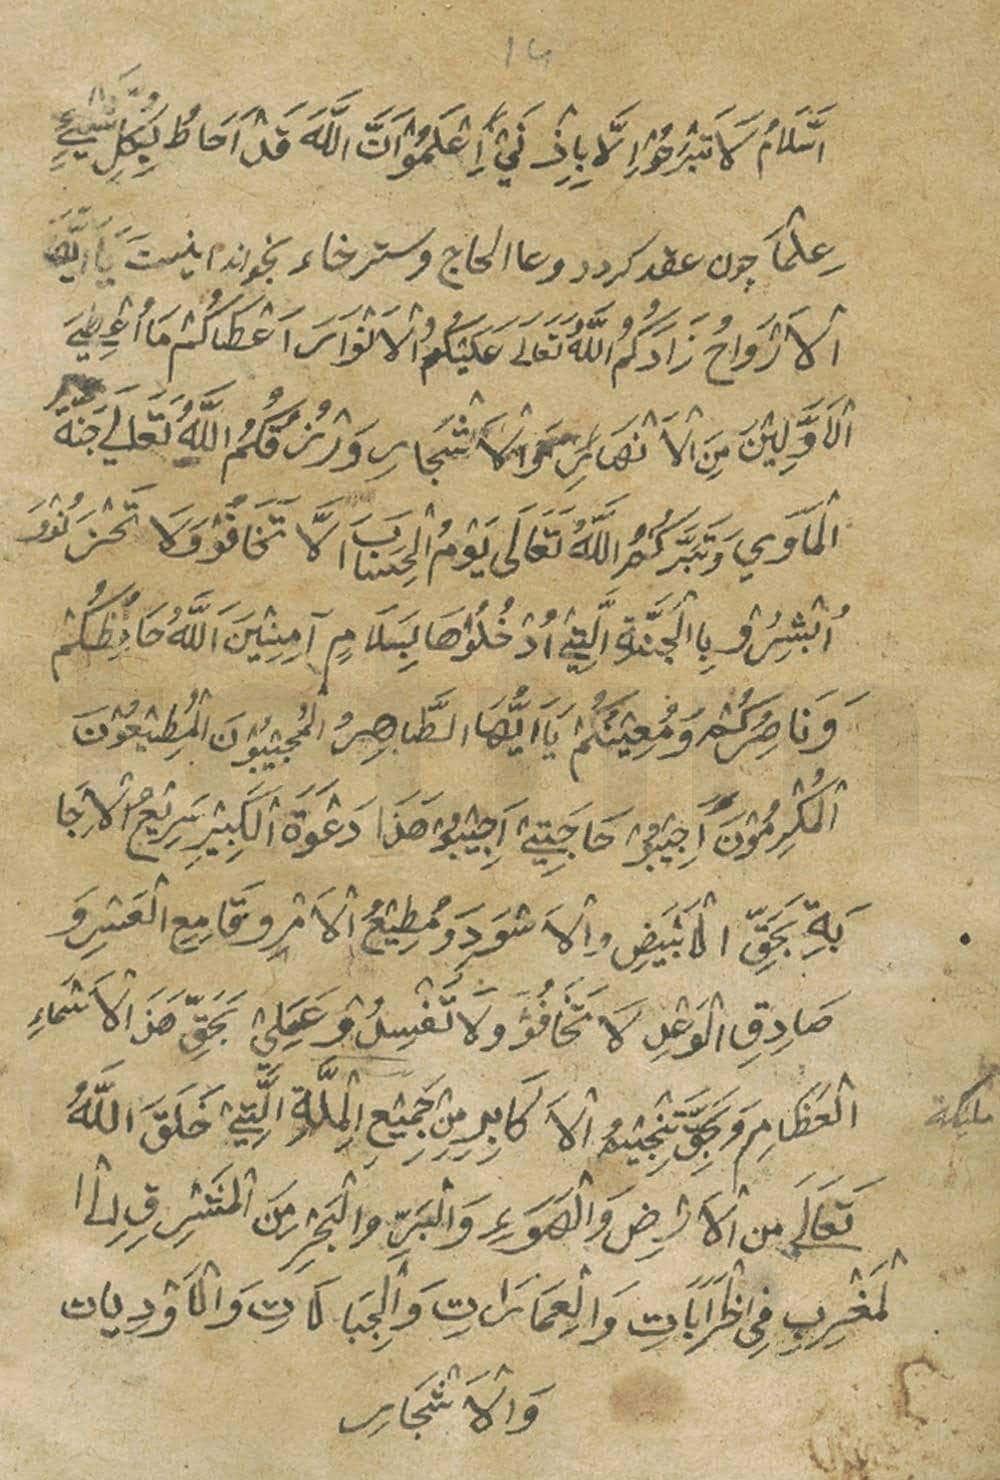 ١٤
اَلسَّلَامُ لَا تَبْرَحُوْا اِلَّا بِاِذْنِيْ اِعْلَمُوْا اَنَّ اللّٰهَ قَدْ اَحَاطَ بِكُلِّ شَيْءٍ
عِلْمًا چون عقد كردد دعا الحاج وستر خاء بخواند اينست يَا اَيُّهَا
الْاَرْوَاحُ زَادَكُمُ اللّٰهُ تَعَالَى عَلَيْكُمُ الْاَنْوَارَ اَعْطَاكُمْ مَا اُعْطِيَ
الْاَوَّلِيْنَ مِنَ الْاَنْهَارِ وَالْاَشْجَارِ وَرْزُقُكُمُ اللّٰهُ تَعَلٰي جَنَّةَ
الْمَاَوٰي وَتَبَرَّكُمُ اللّٰهُ تَعَالَى يَوْمُ الْحِسَابَ اَلَّا تَخَافُوْ وَلَا تَحْزَنُوْ وَ
اُبْشِرُوْ بِا الْجَنَّةِ الَّتِيْ اُدْخُلُوْهَا بِسَلَامٍ آمِنِيْنَ اَللّٰهُ حَافِظُكُمْ
وَنَاصِرُكُمْ وَمُعِيْنُكُمْ يَا اَيُّهَا الطَّاهِرُ الْمُجِيْبُوْنَ الْمُطِيْعُوْنَ
الْمُكْرِمُوْنَ اَجِيْبُوْ حَاجَتِيْ اَجِيْبُوْ هَذَا دَعْوَةَ الْكَبِيْرِ سَرِيْعُ الْاِجَا
بَةِ بَحَقِّ الْاَبْيَضِ وَالْاَسْوَدِ وَمُطِيْعُ الْاَمْرِ وَقَامِعِ الْعَسِرِ وَ
صَادِقِ الْوَعْدِ لَا تَخَافُوْ وَلَا تَفْسِدُوْ عَمَلِيْ بَحَقِّ هَذَ الْاَسْمَاءِ
الْعَظَامِ وَبَحَقِّ تَنْجِيْهُ الْاَكَابِرِ مِنْ جَمِيْعِ الْمِلَّةِ الَّتِيْ خَلَقَ اللّٰهُ
مليكة
تَعَالَى مِن الْاَرْضِ وَالْهَوَءِ وَالْبَرِّ وَالْبَحْرِ مِنَ الْمَشْرِقِ اِلٰى ا
لْمَغْرِبِ فِي الْخَرَابَاتِ وَالْعِمَارَاتِ وَالْجِبَالَاتِ وَالْاَوْدِيَات
وَالْاَشْجَارِ